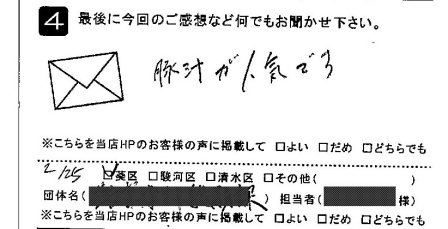 4 最後に今回のご感想など何でもお聞かせ下さい。
豚汁が人気です
※こちらを当店HPのお客様の声に掲載して □よい □だめ □どちらでも
2/25 ☑葵区 □駿河区 □清水区 □その他( )
団体名( ) 担当者( 様)
※こちらを当店HPのお客様の声に掲載して □よい □だめ □どちらでも